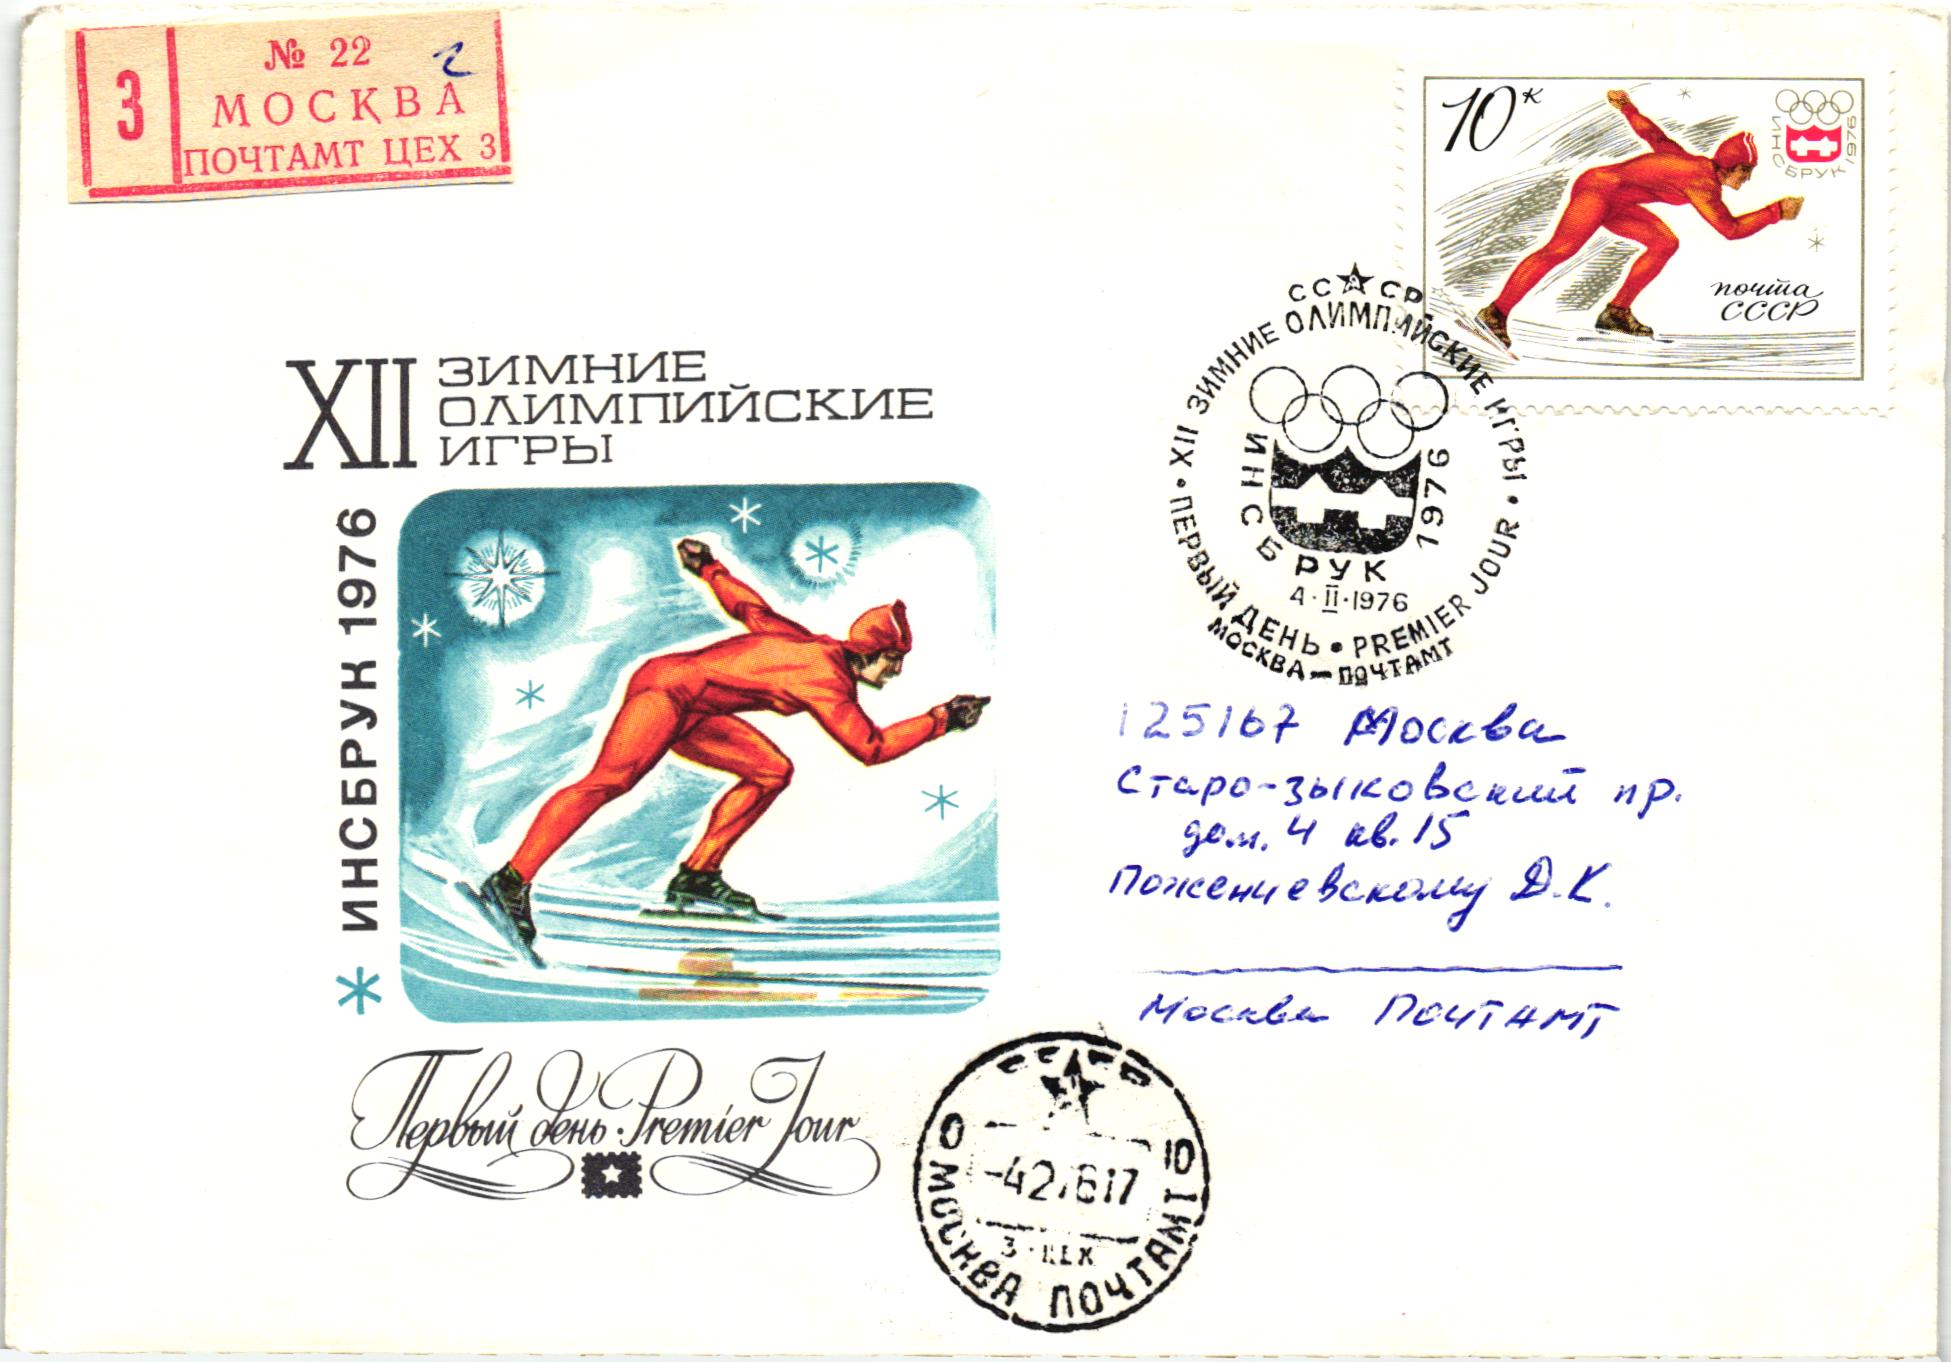 № 22
З
МОСКВА
ПОЧТАМТ ЦЕХ 3
10 К
ИНСБРУК 1976
почта
СССР
СССР
• XII ЗИМНИЕ ОЛИМПИЙСКИЕ ИГРЫ •
ИНСБРУК 1976
4·II·1976
ПЕРВЫЙ ДЕНЬ • PREMIER JOUR
МОСКВА — ПОЧТАМТ
XII ЗИМНИЕ
ОЛИМПИЙСКИЕ
ИГРЫ
* ИНСБРУК 1976
125167 Москва
Старо-зыковский пр.
дом. 4 кв. 15
Пожениевскому Д.К.
Москва Почтамт
Первый день · Premier Jour
СССР
МОСКВА ПОЧТАМТ